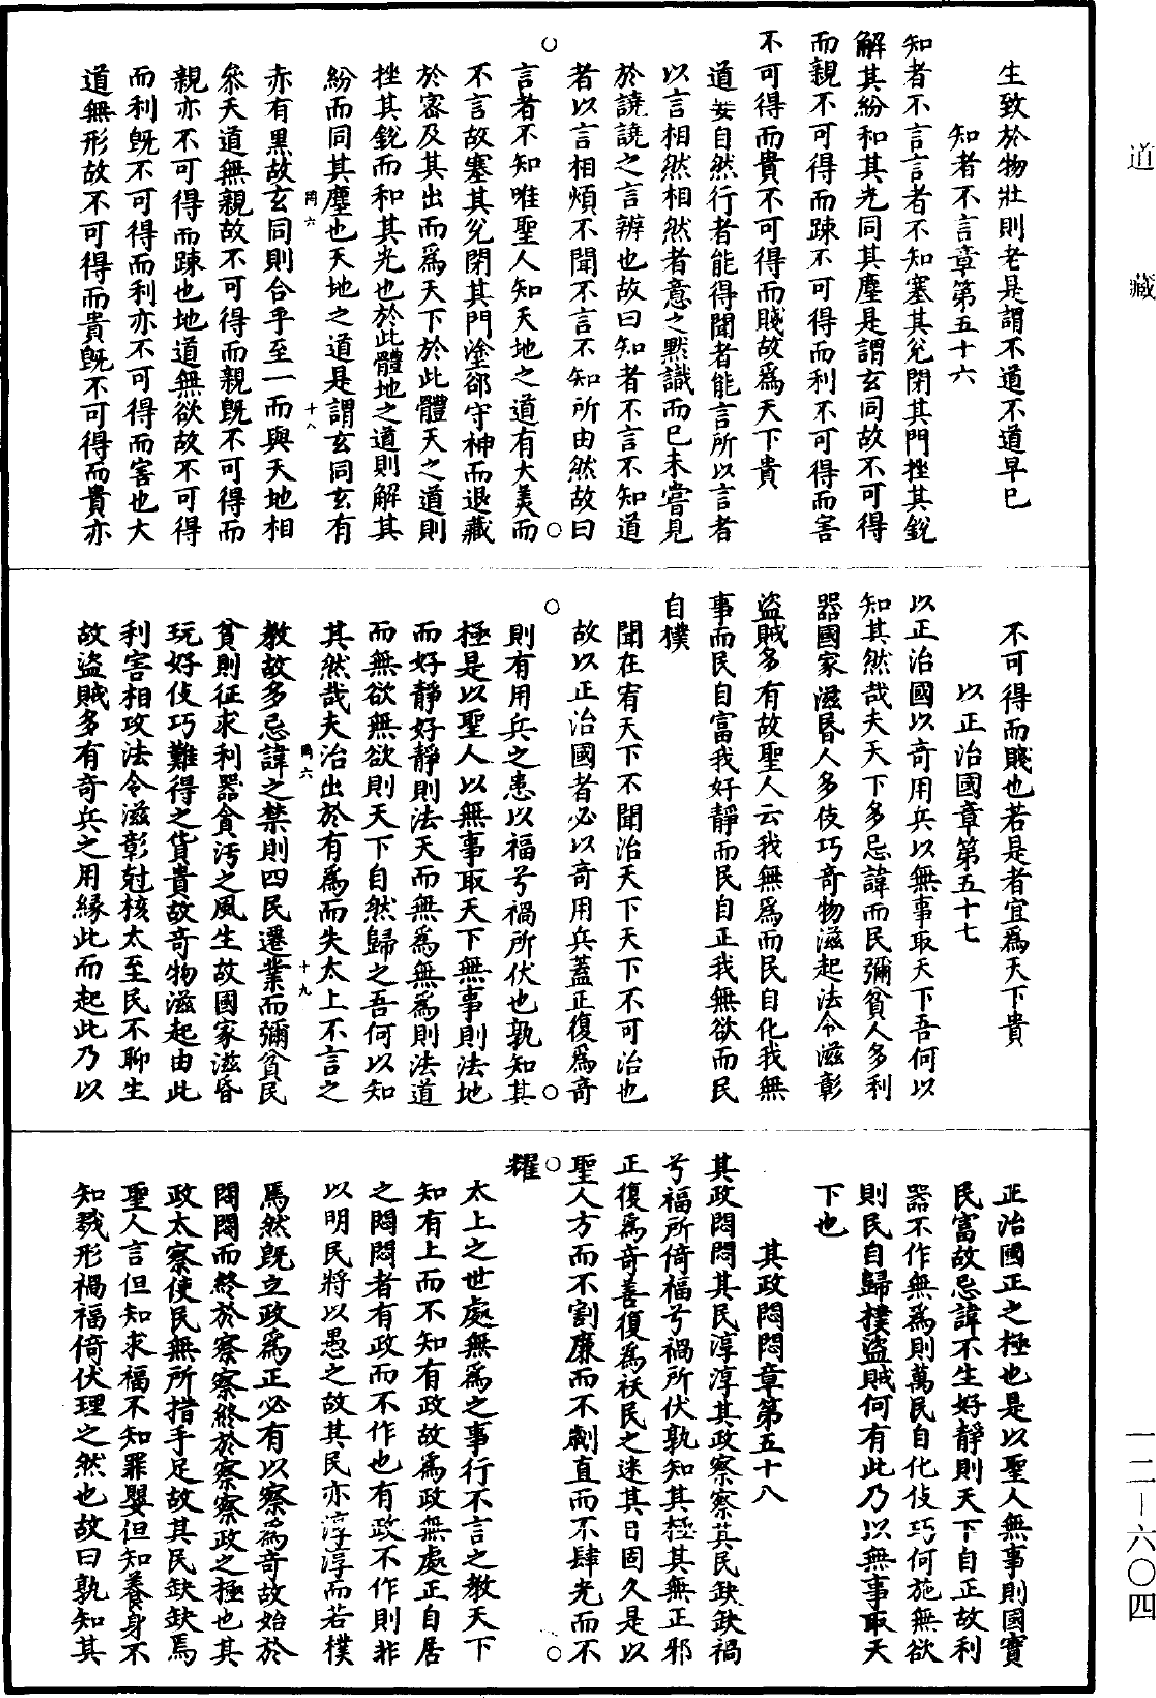 道藏
生致於物壯則老是謂不道不道早已
知者不言章第五十六
知者不言言者不知塞其兊閉其門挫其銳
解其紛和其光同其塵是謂玄同故不可得
而親不可得而踈不可得而利不可得而害
不可得而貴不可得而賤故爲天下貴
道妄自然行者能得聞者能言所以言者
以言相然相然者意之黙識而已未嘗見
於譊譊之言辨也故曰知者不言不知道
者以言相煩不聞不言不知所由然故曰
言者不知唯聖人知天地之道有大美而
不言故塞其兊閉其門塗郤守神而退藏
於宻及其出而爲天下於此體天之道則
挫其銳而和其光也於此體地之道則解其
紛而同其塵也天地之道是謂玄同玄有
罔六
十八
赤有黒故玄同則合乎至一而與天地相
叅天道無親故不可得而親旣不可得而
親亦不可得而踈也地道無欲故不可得
而利旣不可得而利亦不可得而害也大
道無形故不可得而貴旣不可得而貴亦
不可得而賤也若是者宜爲天下貴
以正治國章第五十七
以正治國以奇用兵以無事取天下吾何以
知其然哉夫天下多忌諱而民彌貧人多利
器國家滋昬人多伎巧奇物滋起法令滋彰
盜賊多有故聖人云我無爲而民自化我無
事而民自富我好靜而民自正我無欲而民
自樸
聞在宥天下不聞治天下天下不可治也
故以正治國者必以奇用兵蓋正復爲奇
則有用兵之患以福兮禍所伏也孰知其
極是以聖人以無事取天下無事則法地
而好靜好靜則法天而無爲無爲則法道
而無欲無欲則天下自然歸之吾何以知
其然哉夫治出於有爲而失太上不言之
罔六
十九
敎故多忌諱之禁則四民遷業而彌貧民
貧則征求利器貪汚之風生故國家滋昏
玩好伎巧難得之貨貴故奇物滋起由此
利害相攻法令滋彰尅核太至民不聊生
故盜賊多有奇兵之用縁此而起此乃以
正治國正之極也是以聖人無事則國實
民富故忌諱不生好靜則天下自正故利
器不作無爲則萬民自化伎巧何施無欲
則民自歸樸盜賊何有此乃以無事取天
下也
其政悶悶章第五十八
其政悶悶其民淳淳其政察察其民缺缺禍
兮福所倚福兮禍所伏孰知其極其無正邪
正復爲奇善復為祅民之迷其日固久是以
聖人方而不割廉而不劌直而不肆光而不
耀
太上之世處無爲之事行不言之教天下
知有上而不知有政故爲政無處正自居
之悶悶者有政而不作也有政不作則非
以明民將以愚之故其民亦淳淳而若樸
焉然旣立政爲正必有以察爲奇故始於
悶悶而終於察察終於察察政之極也其
政太察使民無所措手足故其民缺缺焉
聖人言但知求福不知罪嬰但知養身不
知戮形禍福倚伏理之然也故曰孰知其
一二—六〇四